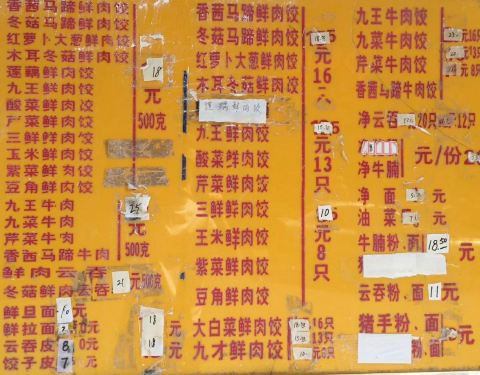 香茜马蹄鲜肉饺
冬菇马蹄鲜肉饺
红萝卜大葱鲜肉饺
木耳冬菇鲜肉饺
莲藕鲜肉饺
九王鲜肉饺
酸菜鲜肉饺
芹菜鲜肉饺
三鲜鲜肉饺
玉米鲜肉饺
紫菜鲜肉饺
豆角鲜肉饺
18
元
500克
九王牛肉
九菜牛肉
芹菜牛肉
香茜马蹄牛肉
25
元
500克
鲜肉云吞
冬菇鲜肉云吞
21
元500克
鲜旦面 10
鲜拉面
云吞皮 8
饺子皮 7.5
18 元
18 元
香茜马蹄鲜肉饺
冬菇马蹄鲜肉饺
红萝卜大葱鲜肉饺
木耳冬菇鲜肉饺
莲藕鲜肉饺
九王鲜肉饺
酸菜鲜肉饺
芹菜鲜肉饺
三鲜鲜肉饺
玉米鲜肉饺
紫菜鲜肉饺
豆角鲜肉饺
元
16
只
元
13
只
10
元
8
只
大白菜鲜肉饺
九才鲜肉饺
16只
13只
元8只
九王牛肉饺
九菜牛肉饺
芹菜牛肉饺
香茜马蹄牛肉饺
元16只
元13只
元8只
净云吞
20只
12只
净牛腩
元/份
净面
元
油菜
元
牛腩粉、面 18.50 元
猪
云吞粉、面 11 元
猪手粉、面 元
面 元